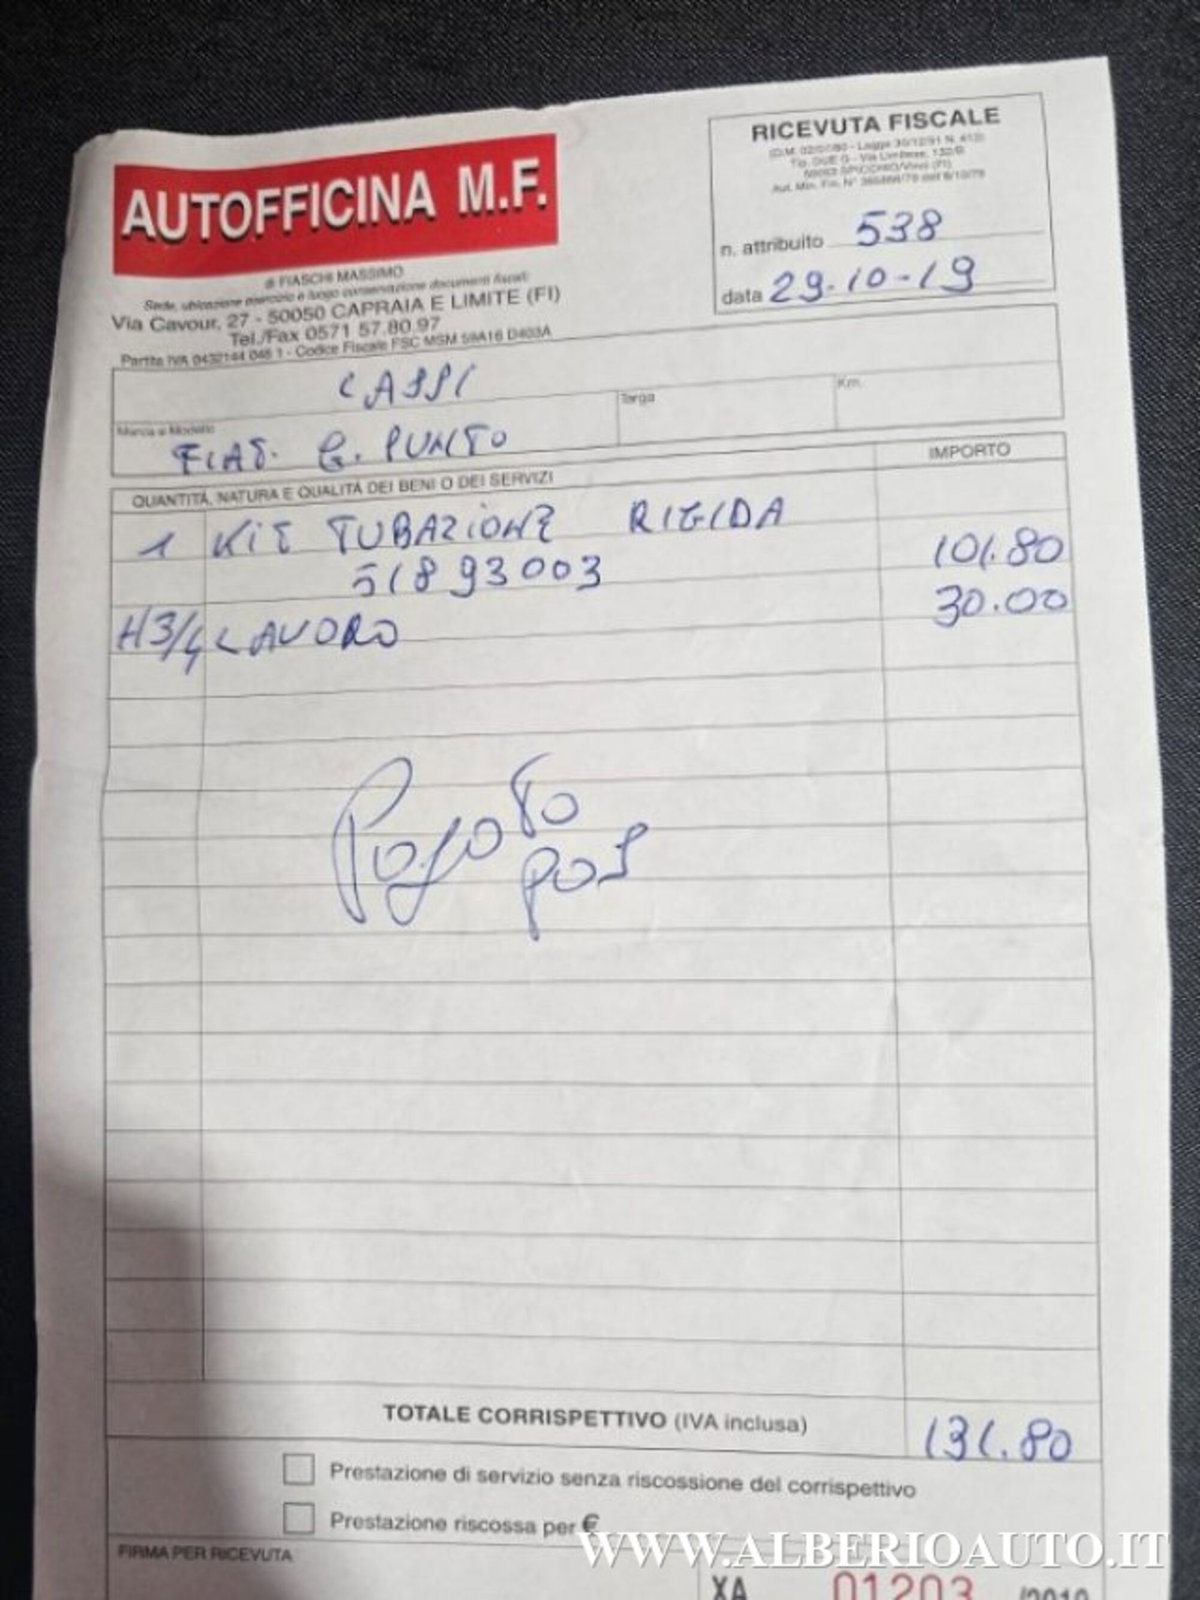 AUTOFFICINA M.F.
di FIASCHI MASSIMO
Sede, ubicazione esercizio e luogo conservazione documenti fiscali:
Via Cavour, 27 - 50050 CAPRAIA E LIMITE (FI)
Tel./Fax 0571 57.80.97
Partita IVA 0432144 048 1 - Codice Fiscale FSC MSM 59A16 D403A
RICEVUTA FISCALE
(D.M. 02/07/80 - Legge 30/12/91 N. 413)
Tip. DUE G - Via Limitese,
50053 SPICCHIO/Vinci (FI)
Aut. Min. Fin. N°
n. attribuito 538
data 29-10-19
CASSI
Marca e Modello Targa Km.
FIAT. G. PUNTO
QUANTITÀ, NATURA E QUALITÀ DEI BENI O DEI SERVIZI IMPORTO
1 KIT TUBAZIONE RIGIDA
51893003 101.80
H3/4 LAVORO 30.00
POS
TOTALE CORRISPETTIVO (IVA inclusa) 131.80
Prestazione di servizio senza riscossione del corrispettivo
Prestazione riscossa per €
FIRMA PER RICEVUTA
WWW.ALBERIOAUTO.IT
XA 01203 /2019